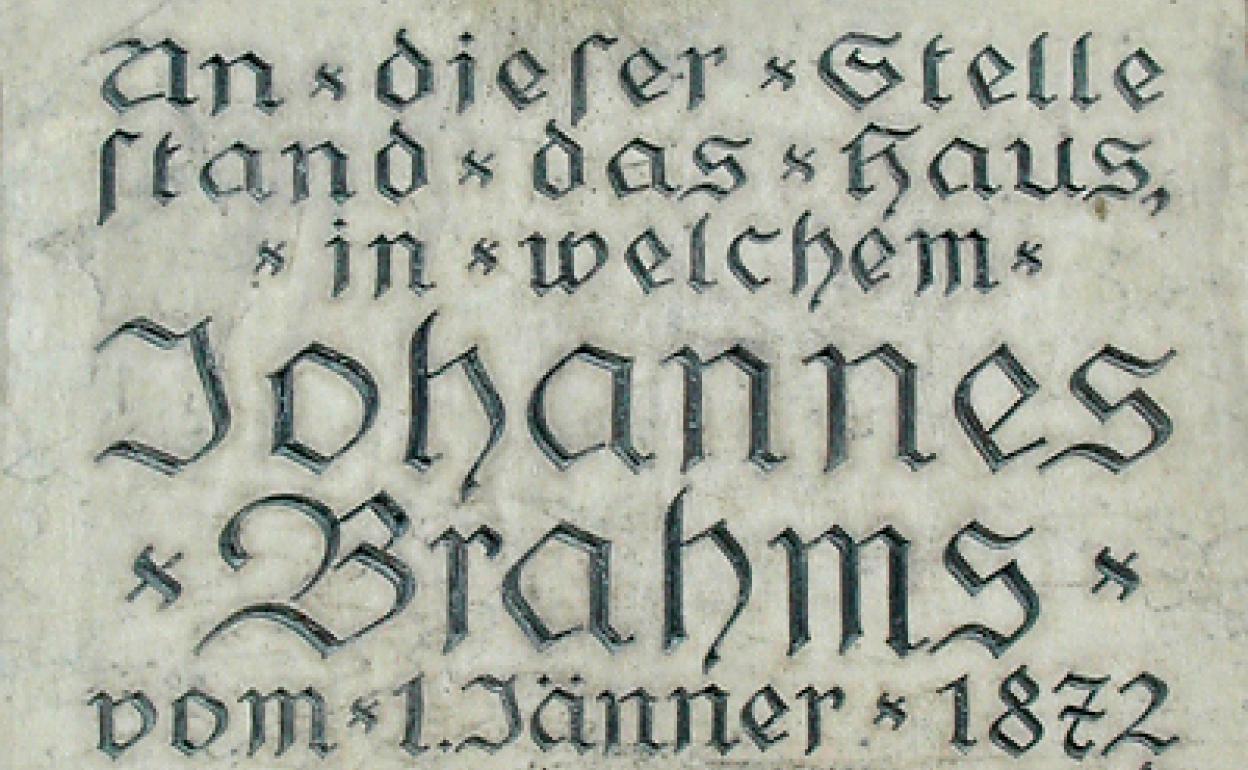 An × dieſer × Stelle
ſtand × das × Haus,
× in × welchem ×
Johannes
× Brahms ×
vom × 1. Jänner × 1872